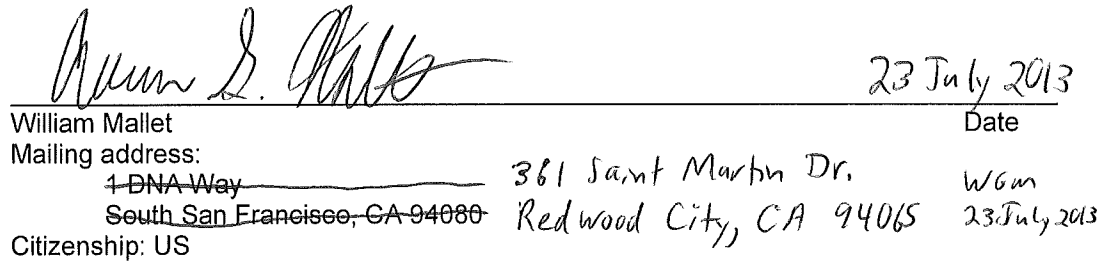 23 July 2013
William Mallet Date
Mailing address:
1 DNA Way 361 Saint Martin Dr. WGM
South San Francisco, CA 94080 Redwood City, CA 94065 23 July 2013
Citizenship: US